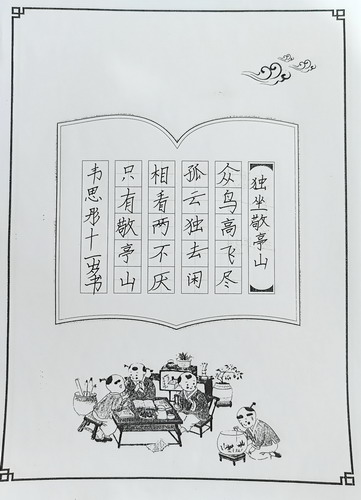 独坐敬亭山
众鸟高飞尽
孤云独去闲
相看两不厌
只有敬亭山
韦思彤十一岁书